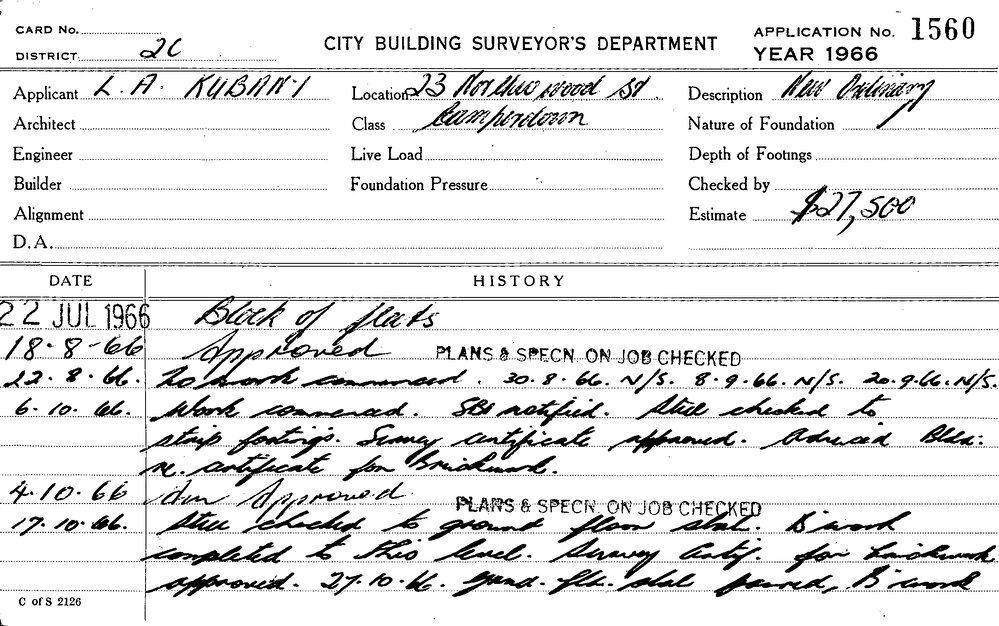 CARD No.
DISTRICT 2C
CITY BUILDING SURVEYOR'S DEPARTMENT
APPLICATION No. 1560
YEAR 1966
Applicant L. A. KUBANI
Location 23 Northwood St.
Description New Ordinary
Architect
Class Camperdown
Nature of Foundation
Engineer
Live Load
Depth of Footings
Builder
Foundation Pressure
Checked by
Alignment
Estimate $27,500
D.A.
DATE HISTORY
22 JUL 1966 Block of flats
18-8-66 Approved PLANS & SPECN. ON JOB CHECKED
22.8.66. No work commenced. 30.8.66. N/S. 8.9.66. N/S. 20.9.66. N/S.
6.10.66. Work commenced. SBS notified. Steel checked to
strip footings. Survey certificate approved. Advised Bldr.
re. certificate for Brickwork.
4.10.66 Am Approved PLANS & SPECN. ON JOB CHECKED
17.10.66. Steel checked to ground floor slab. B'work
completed to this level. Survey Certif. for brickwork
approved. 27.10.66. Grnd. flr. slab poured, B'work
C of S 2126